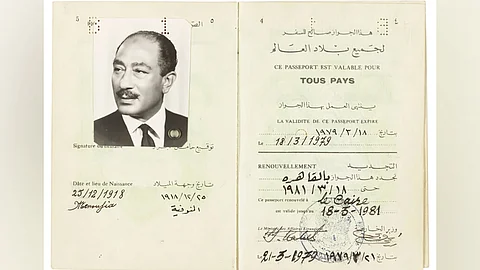 5
الص
٥
Signature du titulaire
توقيع حامل
Date et lieu de Naissance
تاريخ وجهة الميلاد
25/12/1918
١٩١٨/١٢/٢٥
Menoufia
المنوفية
4
٤
هذا الجواز صالح للسفر
لجميع بلاد العالم
CE PASSEPORT EST VALABLE POUR
TOUS PAYS
ينتهى العمل بهذا الجواز
LA VALIDITE DE CE PASSEPORT EXPIRE
بتاريخ ١٩٧٩/٣/١٨
Le 18/3/1979
RENOUVELLEMENT
التجديد
تجدد هذا الجواز بالقاهره
حتى ١٩٨١/٣/١٨
Ce passeport renouvelé à le Caire
est valable jusqu'au 18-3-1981
وزير الخارجية
Le Ministre des Affaires Etrangères
21-3-1979
بتاريخ ١٩٧٩/٣/٢١